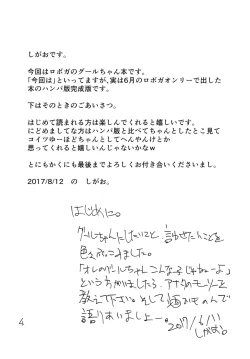 しがおです。
今回はロボガのグールちゃん本です。
「今回は」といってますが、実は6月のロボガオンリーで出した
本のハンパ版完成版です。
下はそのときのごあいさつ。
はじめて読まれる方は楽しんでくれると嬉しいです。
にどめましてな方はハンパ版と比べてちゃんとしたとこ見て
コイツゆーほどちゃんとしてへんやんけとか
思ってくれると嬉しいんじゃないかなw
とにもかくにも最後までよろしくお付き合いくださいまし。
2017/8/12 の しがお。
はじめに。
グールちゃんにしたいことと言わせたいことを
色々つめこみました。
「オレのグールちゃんこんな子じゃねーよ」
というかたいましたら、アナタのストーリーを
教えて下さい。そして酒のむので
語りあいましょー。2017/6/11
しがお。
4